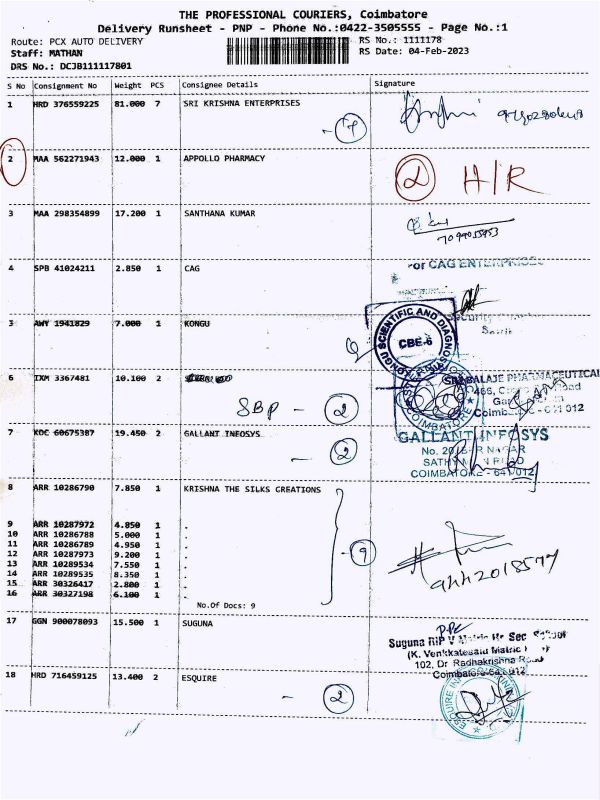 THE PROFESSIONAL COURIERS, Coimbatore
Delivery Runsheet - PNP - Phone No.:0422-3505555 - Page No.:1
Route: PCX AUTO DELIVERY RS No.: 1111178
Staff: MATHAN RS Date: 04-Feb-2023
DRS No.: DCJB111117801
S No Consignment No Weight PCS Consignee Details Signature
1 HRD 376559225 81.000 7 SRI KRISHNA ENTERPRISES
- 7
2 MAA 562271943 12.000 1 APPOLLO PHARMACY
2 H/R
3 MAA 298354899 17.200 1 SANTHANA KUMAR
4 SPB 41024211 2.850 1 CAG
For CAG ENTERPRISES
5 AWY 1941829 7.000 1 KONGU
KONGU SCIENTIFIC AND DIAGNOS
CBE-6
6 IXM 3367481 10.100 2
SBP - 2
BALAJE PHARMACEUTICAL
Coimbatore - 641 012
COIMBATORE
7 KOC 60675387 19.450 2 GALLANT INFOSYS
- 2
GALLANT INFOSYS
COIMBATORE - 641012
8 ARR 10286790 7.850 1 KRISHNA THE SILKS CREATIONS
9 ARR 10287972 4.850 1 .
10 ARR 10286788 5.000 1 .
11 ARR 10286789 4.950 1 .
12 ARR 10287973 9.200 1 .
13 ARR 10289534 7.550 1 .
14 ARR 10289535 8.350 1 .
15 ARR 30326417 2.800 1 .
16 ARR 30327198 6.100 1 .
- 9
No.Of Docs: 9
17 GGN 900078093 15.500 1 SUGUNA
Suguna RIP V Matric Hr Sec School
102, Dr Radhakrishna Road
Coimbatore-641 012
18 HRD 716459125 13.400 2 ESQUIRE
- 2
ESQUIRE